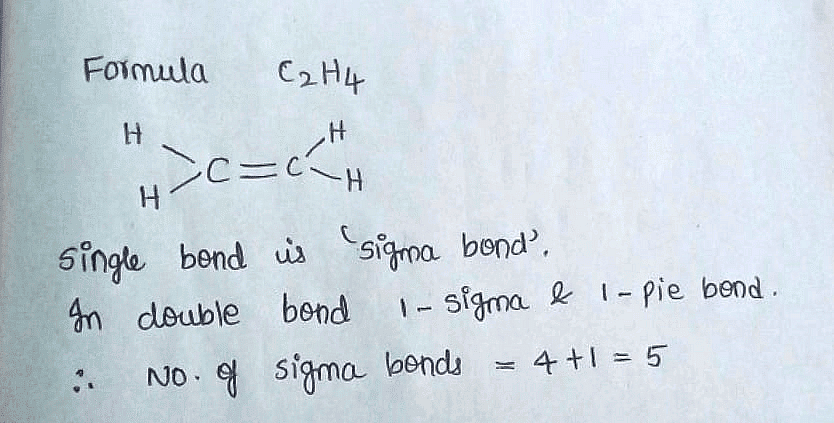 Formula C2H4
H H
C=C
H H
Single bond is 'sigma bond'.
In double bond 1-sigma & 1-pie bond.
∴ No. of sigma bonds = 4+1=5